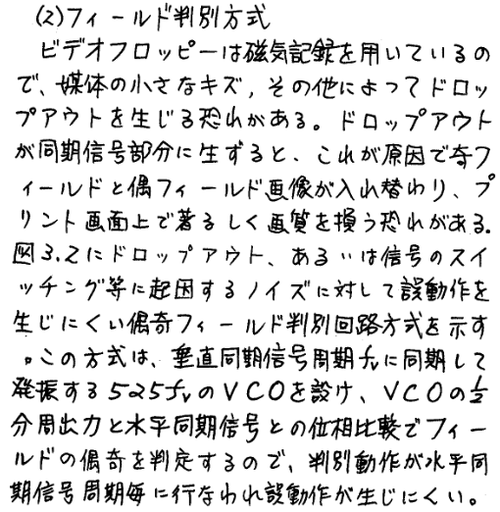 (2)フィールド判別方式
ビデオフロッピーは磁気記録を用いているの
で、媒体の小さなキズ，その他によってドロッ
プアウトを生じる恐れがある。ドロップアウト
が同期信号部分に生ずると、これが原因で奇フ
ィールドと偶フィールド画像が入れ替わり、プ
リント画面上で著るしく画質を損う恐れがある.
図3.2にドロップアウト、あるいは信号のスイ
ッチング等に起因するノイズに対して誤動作を
生じにくい偶奇フィールド判別回路方式を示す
。この方式は、垂直同期信号周期fvに同期して
発振する525fvのVCOを設け、VCOの1/2
分周出力と水平同期信号との位相比較でフィー
ルドの偶奇を判定するので、判別動作が水平同
期信号周期毎に行なわれ誤動作が生じにくい。